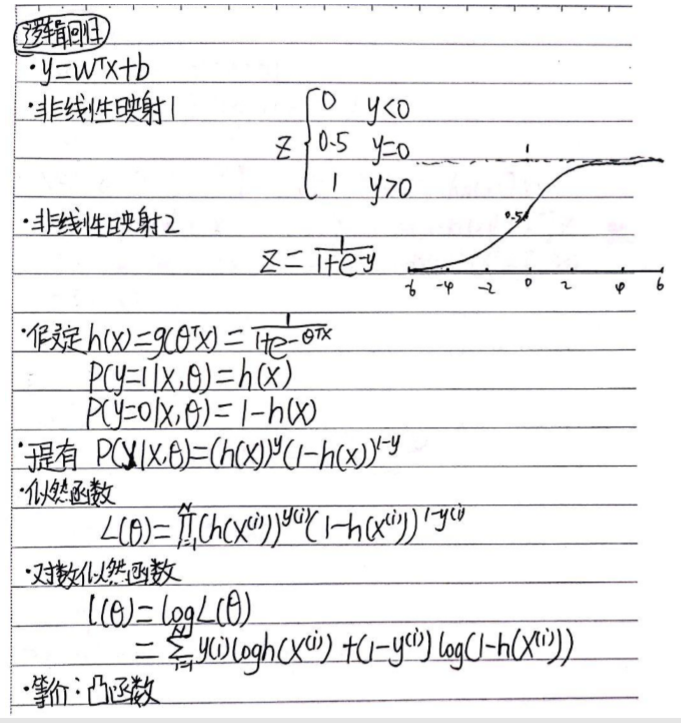 逻辑回归
·y=wᵀx+b
·非线性映射1
z { 0 y<0
0.5 y=0
1 y>0
1
0.5
-6 -4 -2 0 2 4 6
·非线性映射2
z = 1/(1+e^-y)
·假定 h(x)=g(θᵀx)=1/(1+e^-θᵀx)
P(y=1|x,θ)=h(x)
P(y=0|x,θ)=1-h(x)
·于是有 P(y|x,θ)=(h(x))^y(1-h(x))^1-y
·似然函数
L(θ)=∏_{i=1}^{N}(h(x^(i)))^y(i)(1-h(x^(i)))^1-y(i)
·对数似然函数
l(θ)=logL(θ)
=∑_{i=1}^{N} y(i)logh(x^(i))+(1-y^(i))log(1-h(x^(i)))
·等价:凸函数